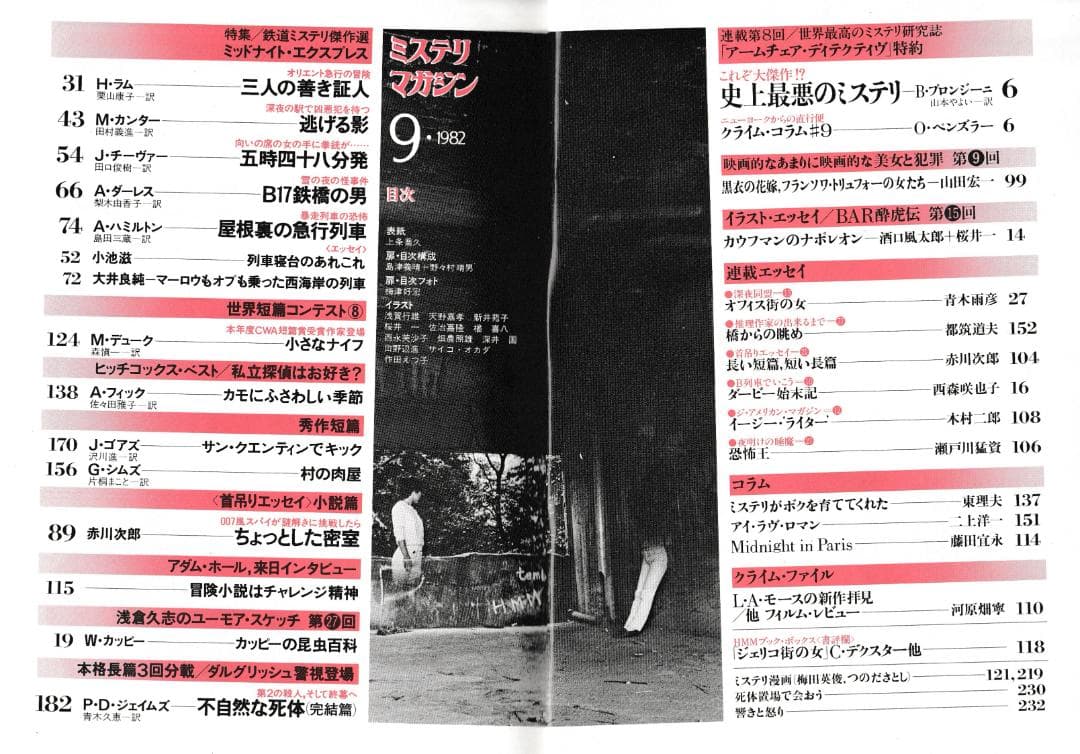 特集/鉄道ミステリ傑作選
ミッドナイト・エクスプレス
オリエント急行の冒険
31 H・ラム 三人の善き証人
栗山康子=訳
深夜の駅で凶悪犯を待つ
43 M・カンター 逃げる影
田村義進=訳
向いの席の女の手に拳銃が……
54 J・チーヴァー 五時四十八分発
田口俊樹=訳
雪の夜の怪事件
66 A・ダーレス B17鉄橋の男
梨木由香子=訳
暴走列車の恐怖
74 A・ハミルトン 屋根裏の急行列車
島田三蔵=訳
〈エッセイ〉
52 小池滋 列車寝台のあれこれ
72 大井良純 マーロウもオプも乗った西海岸の列車
世界短篇コンテスト⑧
本年度CWA短篇賞受賞作家登場
124 M・デューク 小さなナイフ
森慎一=訳
ヒッチコックス・ベスト/私立探偵はお好き?
138 A・フィック カモにふさわしい季節
佐々田雅子=訳
秀作短篇
170 J・ゴアズ サン・クエンティンでキック
沢川進=訳
156 G・シムズ 村の肉屋
片桐まこと=訳
〈首吊りエッセイ〉小説篇
007風スパイが謎解きに挑戦したら
89 赤川次郎 ちょっとした密室
アダム・ホール,来日インタビュー
115 冒険小説はチャレンジ精神
浅倉久志のユーモア・スケッチ 第㉗回
19 W・カッピー カッピーの昆虫百科
本格長篇3回分載/ダルグリッシュ警視登場
第2の殺人,そして終幕へ
182 P・D・ジェイムズ 不自然な死体(完結篇)
青木久恵=訳
ミステリ
マガジン
9・1982
目次
表紙
上条喬久
扉・目次構成
島津義晴+野々村晴男
扉・目次フォト
梅津好宏
イラスト
浅賀行雄 天野嘉孝 新井苑子
桜井 一 佐治嘉隆 橘 喜八
西永笑沙子 畑農照雄 深井 国
向野辺進 サイコ・オカダ
作田えつ子
連載第8回/世界最高のミステリ研究誌
「アームチェア・ディテクティヴ」特約
これぞ大傑作!?
史上最悪のミステリ B・プロンジーニ 6
山本やよい=訳
ニューヨークからの直行便
クライム・コラム♯9 O・ペンズラー 6
映画的なあまりに映画的な 美女と犯罪 第❾回
黒衣の花嫁,フランソワ・トリュフォーの女たち 山田宏一 99
イラスト・エッセイ/BAR酔虎伝 第⓯回
カウフマンのナポレオン 酒口風太郎+桜井一 14
連載エッセイ
●深夜同盟
オフィス街の女 青木雨彦 27
●推理作家の出来るまで
橋からの眺め 都筑道夫 152
●首吊りエッセイ
長い短篇,短い長篇 赤川次郎 104
●B列車でいこう
ダービー始末記 西森咲也子 16
●ジ・アメリカン・マガジン
イージー・'ライター' 木村二郎 108
●夜明けの睡魔
恐怖王 瀬戸川猛資 106
コラム
ミステリがボクを育ててくれた 東理夫 137
アイ・ラヴ・ロマン 二上洋一 151
Midnight in Paris 藤田宜永 114
クライム・ファイル
L・A・モースの新作拝見
/他 フィルム・レビュー 河原畑寧 110
HMMブック・ボックス〈書評欄〉
「ジェリコ街の女」C・デクスター他 118
ミステリ漫画(梅田英俊,つのださとし) 121,219
死体置場で会おう 230
響きと怒り 232